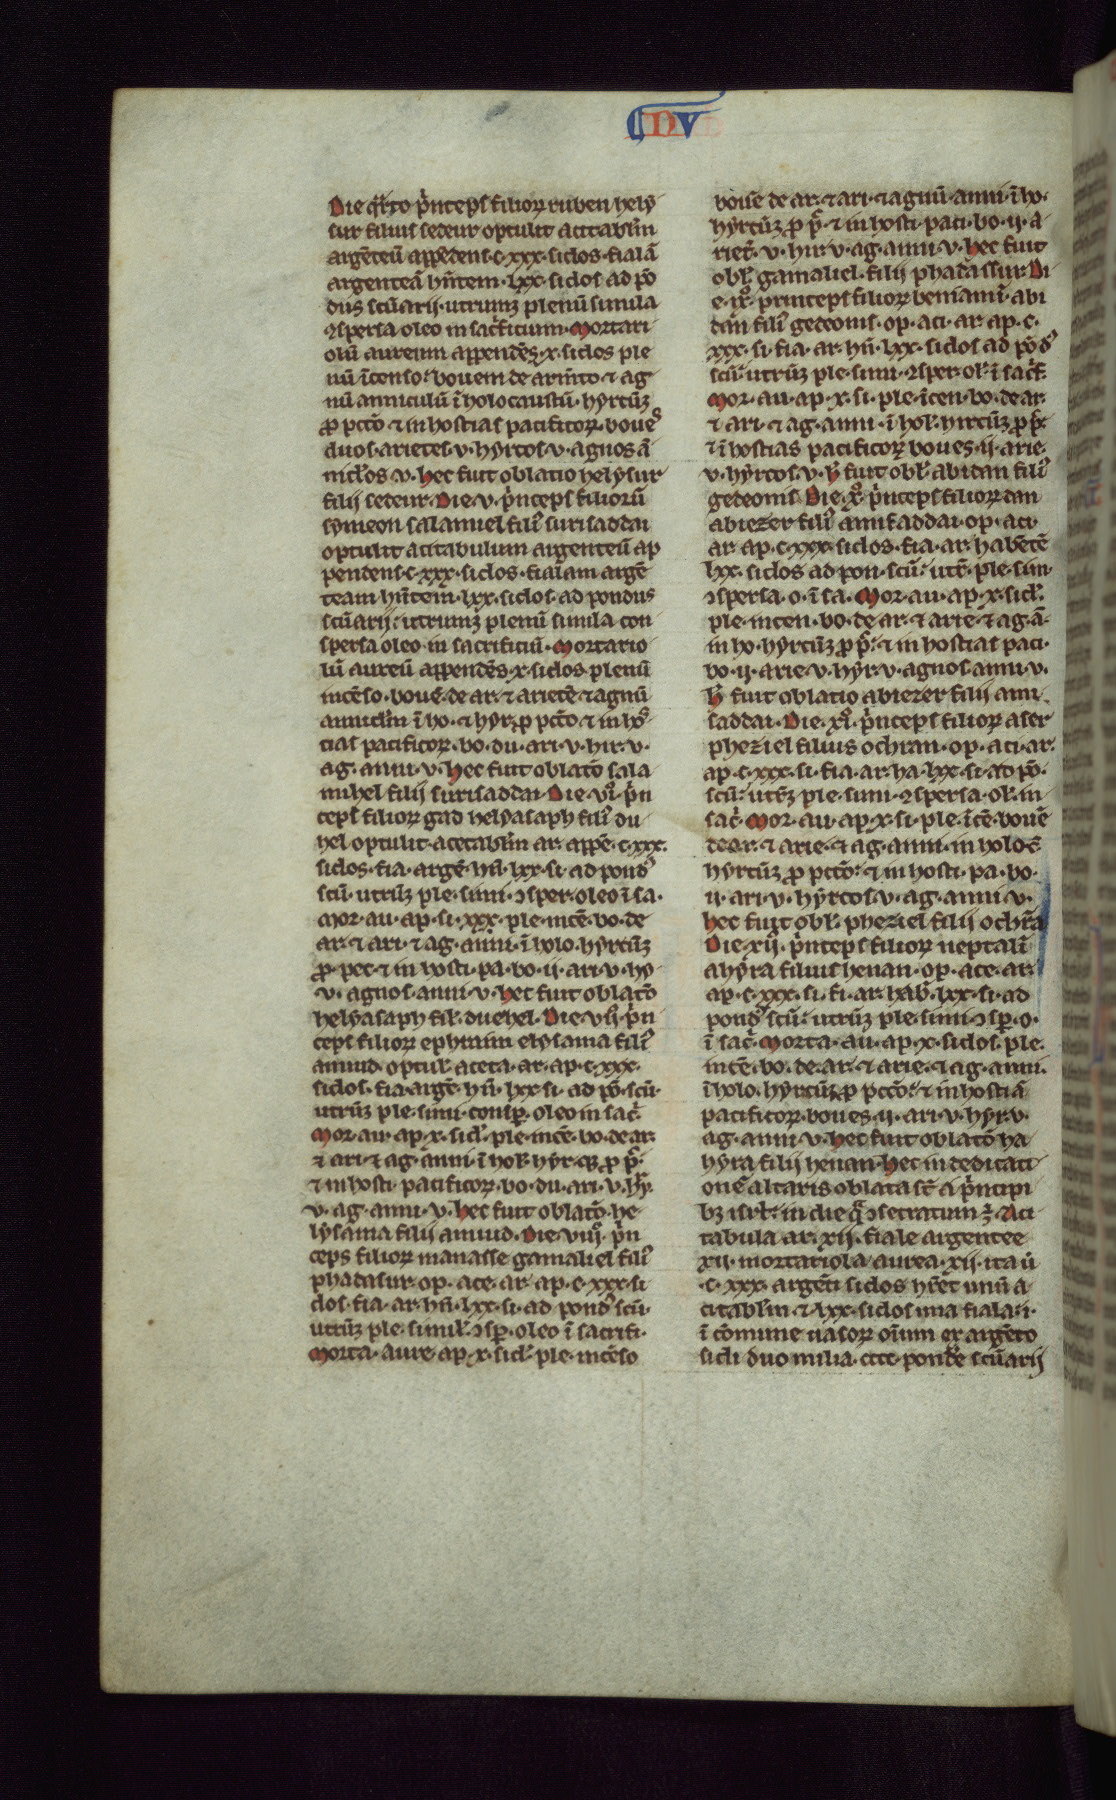 NV
Die q̄rto p̄nceps filioꝝ ruben helẏ
sur filius sedeur optulit acitabl̄m
argēteū appēdens·c·xxx·siclos·fialā
argenteā hn̄tem·lxx·siclos ad pō
dus scūarij·utrumꝫ plenū simila
ↄspersa oleo in sacͥficium·Mortari
olū aureum appendēs·x·siclos ple
nū īcenso: bouem de arm̄to ⁊ ag
nū anniculū ī holocaustū·hyrcūꝫ
ꝓ pctō ⁊ in hostias pacificoꝝ·boueˢ
duos·arietes·v·hyrcos·v·agnos ā
nicl̄os·v·Hec fuit oblatio helẏsur
filij sedeur·Die·v·p̄nceps filiorū
sẏmeon salamiel filiˀ surisaddai
optulit acitabulum argenteū ap
pendens·c·xxx·siclos·fialam argē
team hn̄tem·lxx·siclos·ad pondus
scūarij: utrumꝫ plenū simila con
spersa oleo·in sacrificiū·Mortario
lū aureū appendēs·x·siclos·plenū
incēso·bouē·de ar·⁊ arietē·⁊ agnū
anniclm̄ ī ho·⁊ hẏr·ꝓ pctō·⁊ in hoˢ
tias pacificoꝝ·bo·du·ari·v·hir·v·
ag·anni·v·Hec fuit oblatō sala
mihel filij surisaddai·Die·vi°·p̄n
ceps filioꝝ gad helẏasaph filiˀ du
hel optulit·acetabl̄m ar·appē·c·xxx·
siclos·fia·argē·hn̄·lxx·si·ad pondˀ
scū·utrūꝫ ple·simi·ↄsper·oleo ī sa·
Mor·au·ap·si·xxx·ple·incē·bo·de
ar·⁊ ari·⁊ ag·anni·ī holo·hẏrcūꝫ
ꝓ·pec·⁊ in hosti·pa·bo·ii·ari·v·hẏ·
v·agnos·anni·v·Hec fuit oblatō
helẏasaph fil̄·duehel·Die·vii°·p̄n
ceps filioꝝ ephraim elẏsama filiˀ
amiud·optul̄·aceta·ar·ap·c·xxx·
siclos·fia·argē·hn̄·lxx·si·ad pō·scū·
utrūꝫ ple·simi·consꝑ·oleo in sac̄·
Mor·au·ap·x·sicl̄·ple·incē·bo·de ar·
⁊ ari·⁊ ag·anni·ī hol̄·hẏr·qꝫ ꝓ p̄·
⁊ in hosti·pacificoꝝ·bo·du·ari·v·hẏ·
v·ag·anni·v·Hec fuit oblatō·he
lẏsama filij amiud·Die·viii°·p̄n
ceps filioꝝ manasse gamaliel filiˀ
phadasur·op·ace·ar·ap·c·xxx·si
clos·fia·ar·hn̄·lxx·si·ad pondˀ scū·
utrūꝫ ple·simil̄·ↄsꝑ·oleo ī sacrifi·
Morta·aure·ap·x·sicl̄·ple·incēso
bouē de ar·⁊ ari·⁊ agnū·anni·ī ho·
hẏrcūꝫ ꝓ p̄·⁊ in hosti·paci·bo·ii·a
riet̄·v·hir·v·ag·anni·v·Hec fuit
obl̄·gamaliel·filij phadassur·Di
e·ix°·princeps filioꝝ beniami·abi
dan filiˀ gedeonis·op·aci·ar·ap·c·
xxx·si·fia·ar·hn̄·lxx·siclos ad pōdˀ
scū·utrūꝫ ple·simi·ↄsper·ol̄·ī sacͥf·
Mor·au·ap·x·si·ple·īcen·bo·de ar·
⁊ ari·⁊ ag·anni·ī hol̄·hircūꝫ ꝓ p̄:
⁊ ī hostias pacificoꝝ boues·ii·arie·
v·hẏrcos·v·h̄ fuit obl̄·abidan filiˀ
gedeonis·Die·x°·p̄nceps filioꝝ dan
abiezer filiˀ amisaddai·op·aci·
ar·ap·c·xxx·siclos·fia·ar·habētē
lxx·siclos ad pon·scū: utr̄·ple·sim·
ↄspersa·o·ī sa·Mor·au·ap·x·sicl̄·
ple·incen·bo·de ar·⁊ arie·⁊ ag·ā·
in ho·hẏrcūꝫ ꝓ p̄: ⁊ in hostias paci·
bo·ii·arie·v·hẏr·v·agnos anni·v·
h̄ fuit oblatio abiezer filij ami
saddai·Die·xi°·p̄nceps filioꝝ aser
pheziel filius ochran·op·aci·ar·
ap·c·xxx·si·fia·ar·ha·lxx·si·ad pō·
scū: utr̄ꝫ ple·simi·ↄspersa·ol̄·in
sac̄·Mor·au·ap·x·si·ple·īcē·bouē
de ar·⁊ arie·⁊ ag·anni·in holoc̄
hẏrcūꝫ ꝓ pctō: ⁊ in hosti·pa·bo·
ii·ari·v·hẏrcos·v·ag·anni·v·
Hec fuit obl̄·pheziel filij ochrā
Die xii°·p̄nceps filioꝝ neptalī
ahẏra filius henan·op·ace·ar·
ap·c·xxx·si·fi·ar·hab̄·lxx·si·ad
pondˀ scū: utrūꝫ ple·simi·ↄsꝑ·o·
ī sac̄·Morta·au·ap·x·siclos·ple·
incē·bo·de ar·⁊ arie·⁊ ag·anni·
ī holo·hẏrcūꝫ ꝓ pctō: ⁊ in hostiā
pacificoꝝ·boues·ii·ari·v·hẏr·v·
ag·anni·v·Hec fuit oblatō ha
hẏra filij henan·Hec in dedicati
onē altaris oblata sͭ a p̄ncipi
bꝫ isrl̄·in die q̄ ↄsecratum ē·Aci
tabula ar·xii·fiale argentee
xii·mortariola aurea·xii·ita ū
·c·xxx·argēti siclos hr̄et unū a
citabl̄m·⁊ lxx·siclos una fiala·i·
ī cōmune uasoꝝ oīum ex argēto
sicli duo milia·cccc·pondˀe scūarij